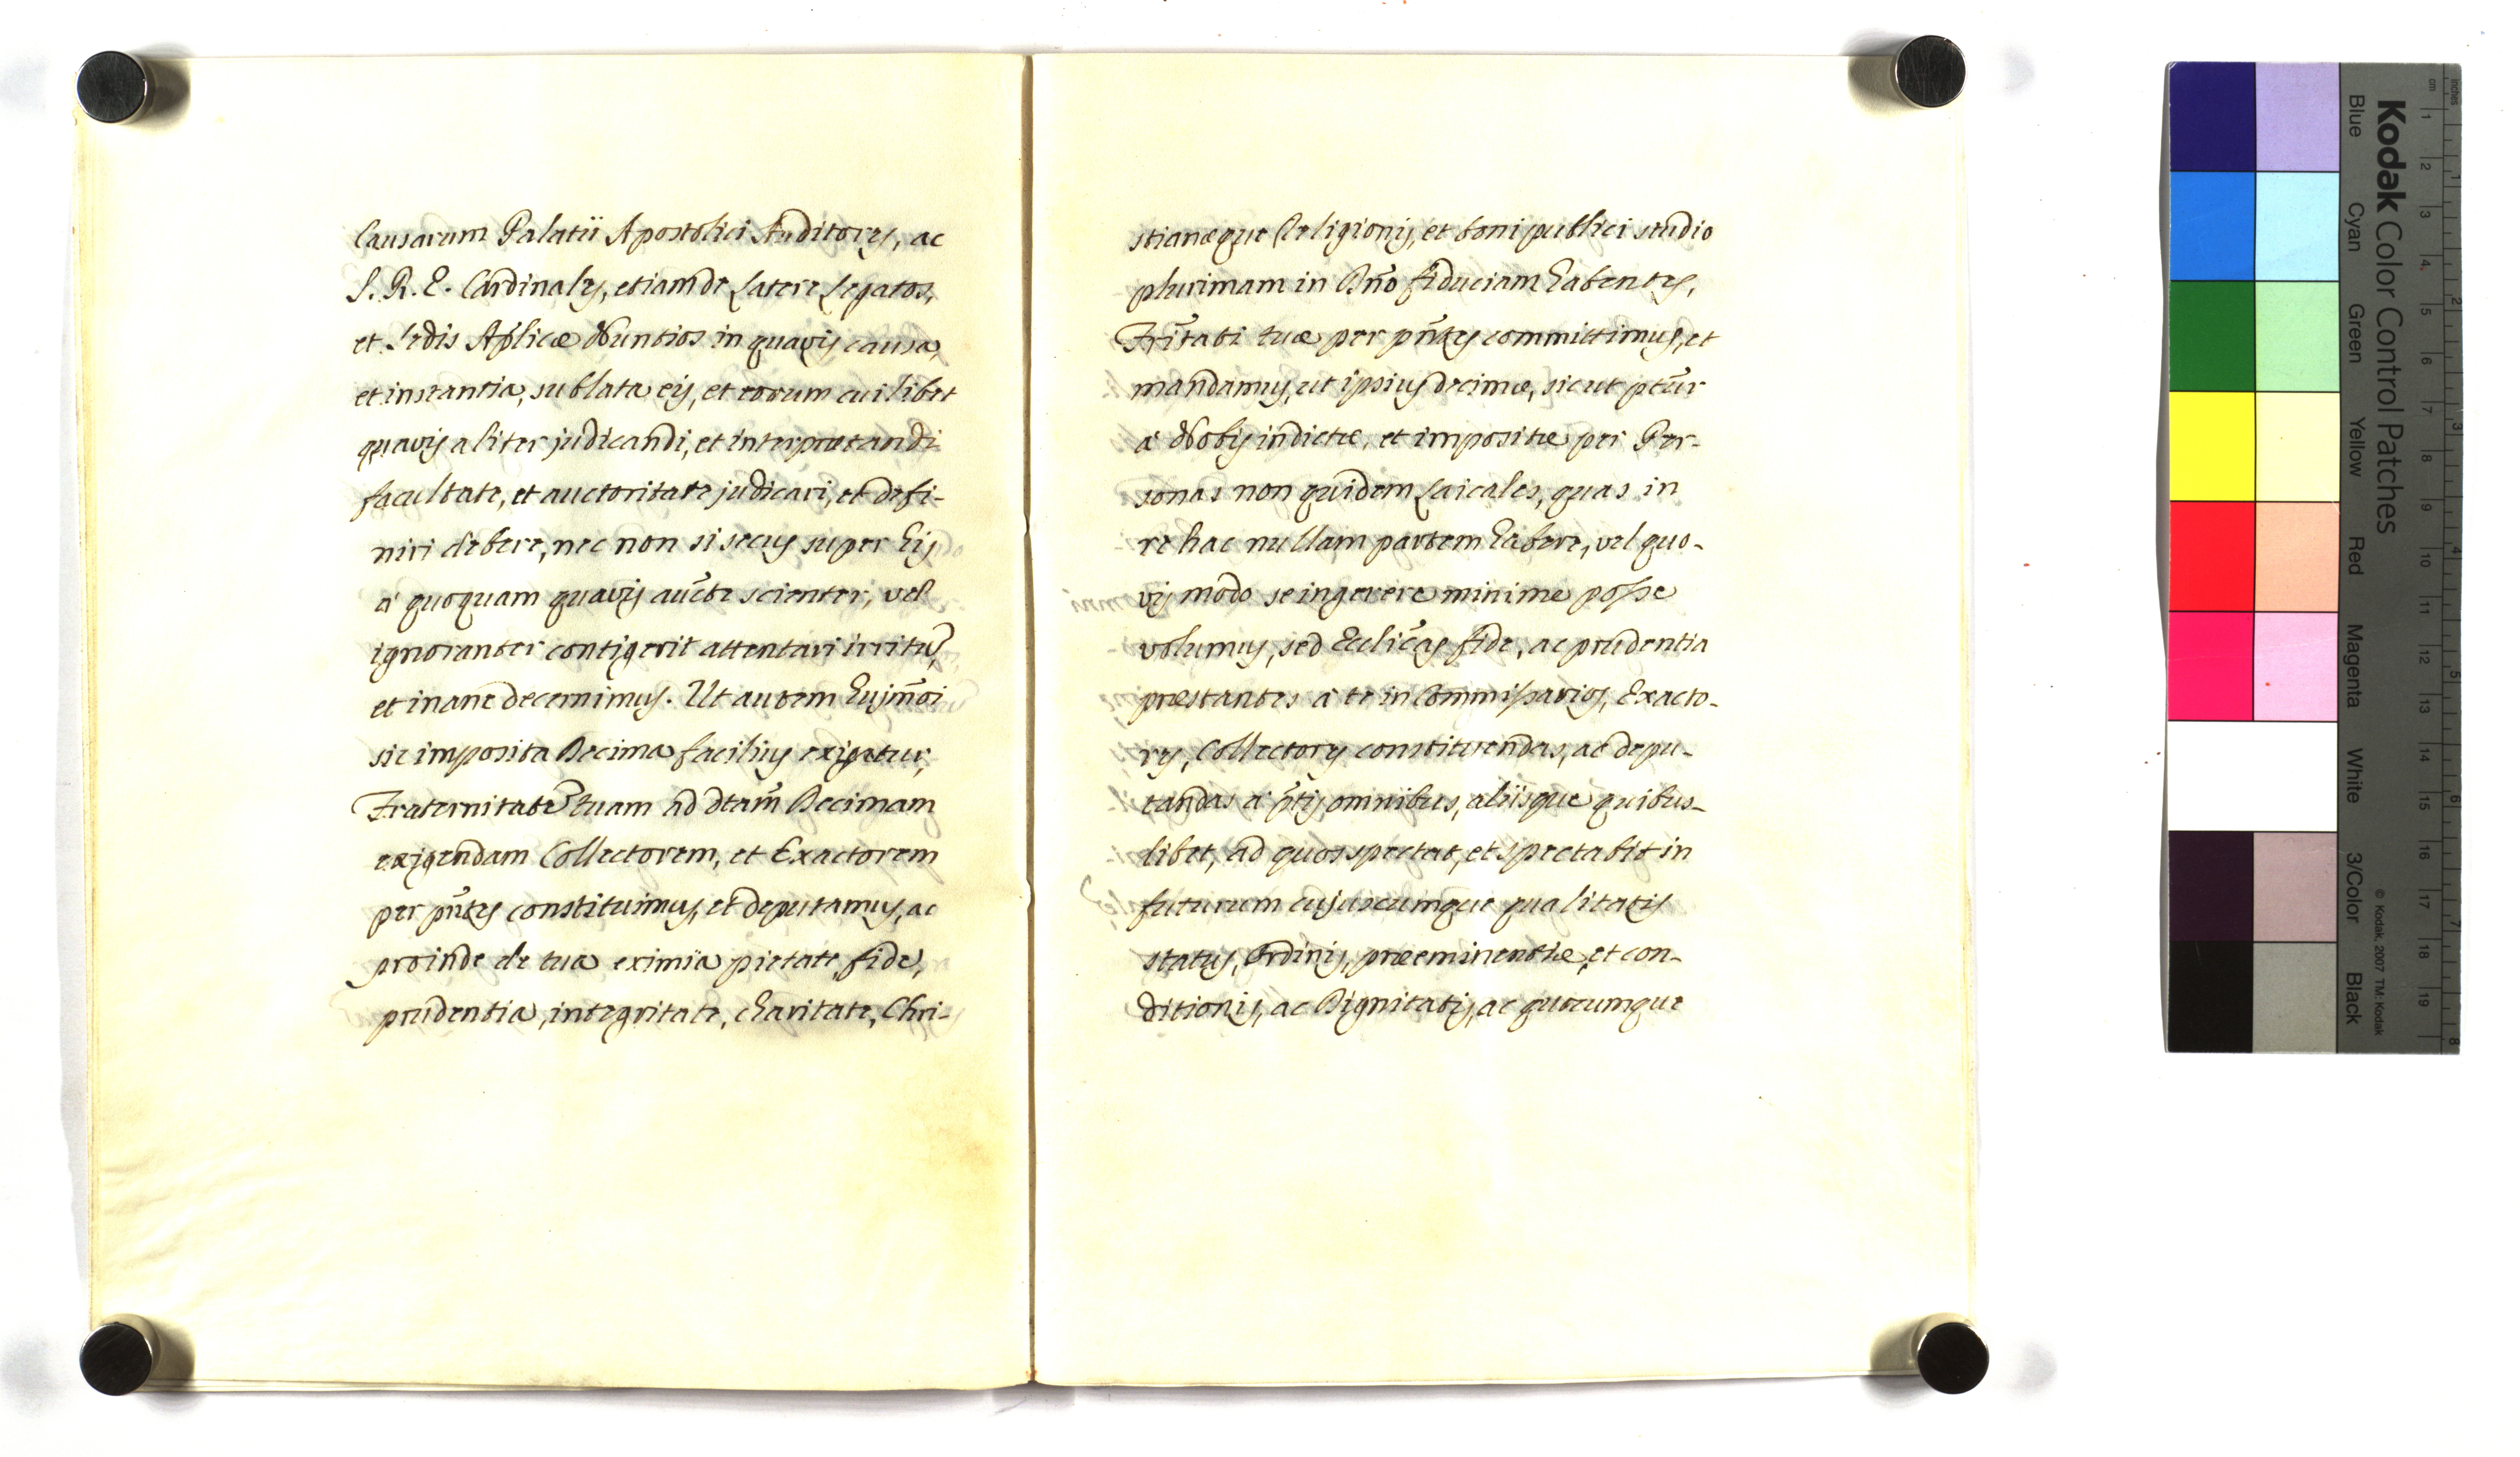 Causarum Palatii Apostolici Auditores, ac
S. R. E. Cardinales, etiam de Latere Legatos,
et Sedis Aplicæ Nuntios in quavis causa,
et instantia, sublata eis, et eorum cuilibet
quavis aliter judicandi, et interpretandi
facultate, et auctoritate judicari, et defi-
niri debere, nec non si secus super his
à quoquam quavis aucte scienter, vel
ignoranter contigerit attentari irritũ,
et inane decernimus. Ut autem hujm̃oi
sic imposita Decima facilius exigatur,
Fraternitatẽ tuam ad dtam̃ Decimam
exigendam Collectorem, et Exactorem
per pñtes constituimus, et deputamus, ac
proinde de tua eximia pietate, fide,
prudentia, integritate, charitate, Chri-
stianæque Religionis, et boni publici studio
plurimam in Dño fiduciam habentes,
Frĩtati tuæ per pñtes committimus, et
mandamus, ut ipsius decimæ, sicut ptũr
à Nobis indictæ, et impositæ per Per-
sonas non quidem Laicales, quas in
re hac nullam partem habere, vel quo-
vis modo se ingerere minime posse
volumus, sed Ecclicãs fide, ac prudentia
præstantes à te in Commissarios, Exacto-
res, Collectores constituendas, ac depu-
tandas à p̃tis omnibus, aliisque quibus-
libet, ad quos spectat, et spectabit in
futurum cujuscumque qualitatis
status, Ordinis, præeminentiæ, et con-
ditionis, ac Dignitatis, ac quocumque
Kodak Color Control Patches
Blue Cyan Green Yellow Red Magenta White 3/Color Black
© Kodak, 2007 TM: Kodak
inches
cm
1 2 3 4 5 6 7 8 9 10 11 12 13 14 15 16 17 18 19
1 2 3 4 5 6 7 8